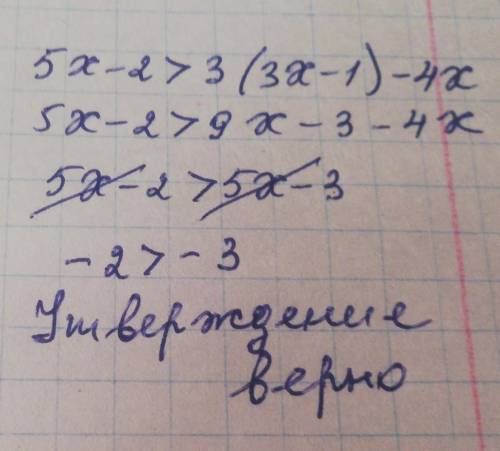 5x-2>3(3x-1)-4x
5x-2>9x-3-4x
5x-2>5x-3
-2>-3
Утверждение
верно